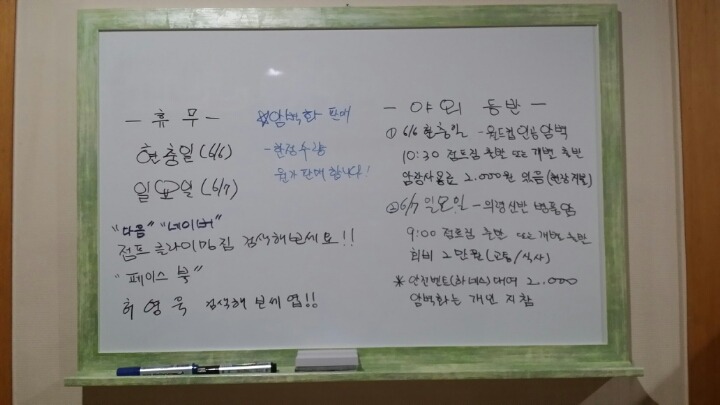 - 휴 무 -
현충일 (6/6)
일요일 (6/7)
※암벽화 판매
- 한정수량
원가판매합니다!
"다음" "네이버"
점프 클라이밍짐 검색해보세요!!
"페이스 북"
허영욱 검색해 보세엽!!
- 야외 등반 -
① 6/6 현충일 - 월드컵인공암벽
10:30 점프짐 출발 또는 개별 출발
암장사용료 2.000원 있음 (현장지불)
② 6/7 일요일 - 의령신반 병풍암
9:00 점프짐 출발 또는 개별 출발
회비 2만원 (교통/식사)
※ 안전벨트(하네스) 대여 2.000
암벽화는 개인 지참